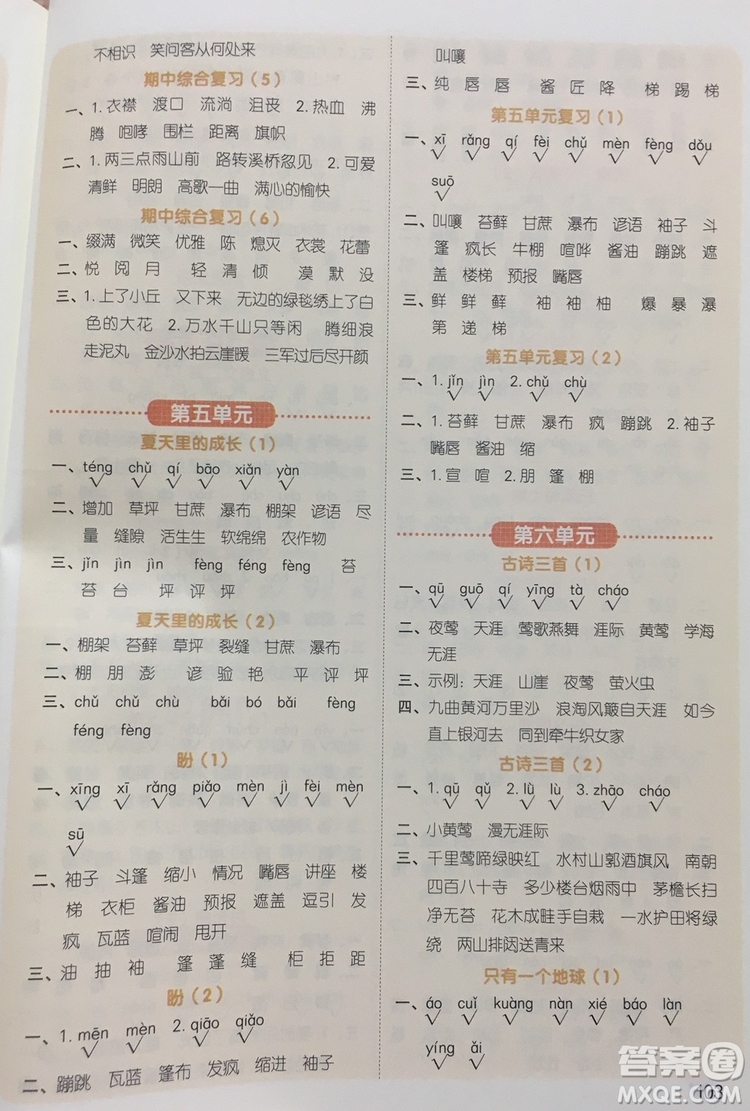 不相识 笑问客从何处来
期中综合复习(5)
一、1.衣襟 渡口 流淌 沮丧 2.热血 沸
腾 咆哮 围栏 距离 旗帜
二、1.两三点雨山前 路转溪桥忽见 2.可爱
清鲜 明朗 高歌一曲 满心的愉快
期中综合复习(6)
一、缀满 微笑 优雅 陈 熄灭 衣裳 花蕾
二、悦 阅 月 轻 清 倾 漠 默 没
三、1.上了小丘 又下来 无边的绿毯绣上了白
色的大花 2.万水千山只等闲 腾细浪
走泥丸 金沙水拍云崖暖 三军过后尽开颜
第五单元
夏天里的成长(1)
一、téng chǔ qí bāo xiǎn yàn
二、增加 草坪 甘蔗 瀑布 棚架 谚语 尽
量 缝隙 活生生 软绵绵 农作物
三、jǐn jìn jìn fèng féng fèng 苔
苔 台 坪 评 坪
夏天里的成长(2)
一、棚架 苔藓 草坪 裂缝 甘蔗 瀑布
二、棚 朋 澎 谚 验 艳 平 评 坪
三、chǔ chǔ chù bǎi bó bǎi féng
féng fèng
盼(1)
一、xīng xī rǎng piǎo mèn jì fèi mèn
sū
二、袖子 斗篷 缩小 情况 嘴唇 讲座 楼
梯 衣柜 酱油 预报 遮盖 逗引 发
疯 瓦蓝 喧闹 甩开
三、油 抽 袖 篷 蓬 缝 柜 拒 距
盼(2)
一、1.mēn mèn 2.qiāo qiǎo
二、蹦跳 瓦蓝 篷布 发疯 缩进 袖子
叫嚷
三、纯 唇 唇 酱 匠 降 梯 踢 梯
第五单元复习(1)
一、xī rǎng qí fèi chǔ mèn fèng dǒu
suō
二、叫嚷 苔藓 甘蔗 瀑布 谚语 袖子 斗
篷 疯长 牛棚 喧哗 酱油 蹦跳 遮
盖 楼梯 预报 嘴唇
三、鲜 鲜 藓 袖 袖 柚 爆 暴 瀑
第 递 梯
第五单元复习(2)
一、1.jǐn jìn 2.chǔ chù
二、1.苔藓 甘蔗 瀑布 疯 蹦跳 2.袖子
嘴唇 酱油 缩
三、1.宣 喧 2.朋 篷 棚
第六单元
古诗三首(1)
一、qū guō qí yīng tà cháo
二、夜莺 天涯 莺歌燕舞 涯际 黄莺 学海
无涯
三、示例：天涯 山崖 夜莺 萤火虫
四、九曲黄河万里沙 浪淘风簸自天涯 如今
直上银河去 同到牵牛织女家
古诗三首(2)
一、1.qū qǔ 2.lǜ lù 3.zhāo cháo
二、小黄莺 漫无涯际
三、千里莺啼绿映红 水村山郭酒旗风 南朝
四百八十寺 多少楼台烟雨中 茅檐长扫
静无苔 花木成畦手自栽 一水护田将绿
绕 两山排闼送青来
只有一个地球(1)
一、áo cuǐ kuàng nàn xié báo làn
yíng ǎi
103
答案圈
MXQE.COM